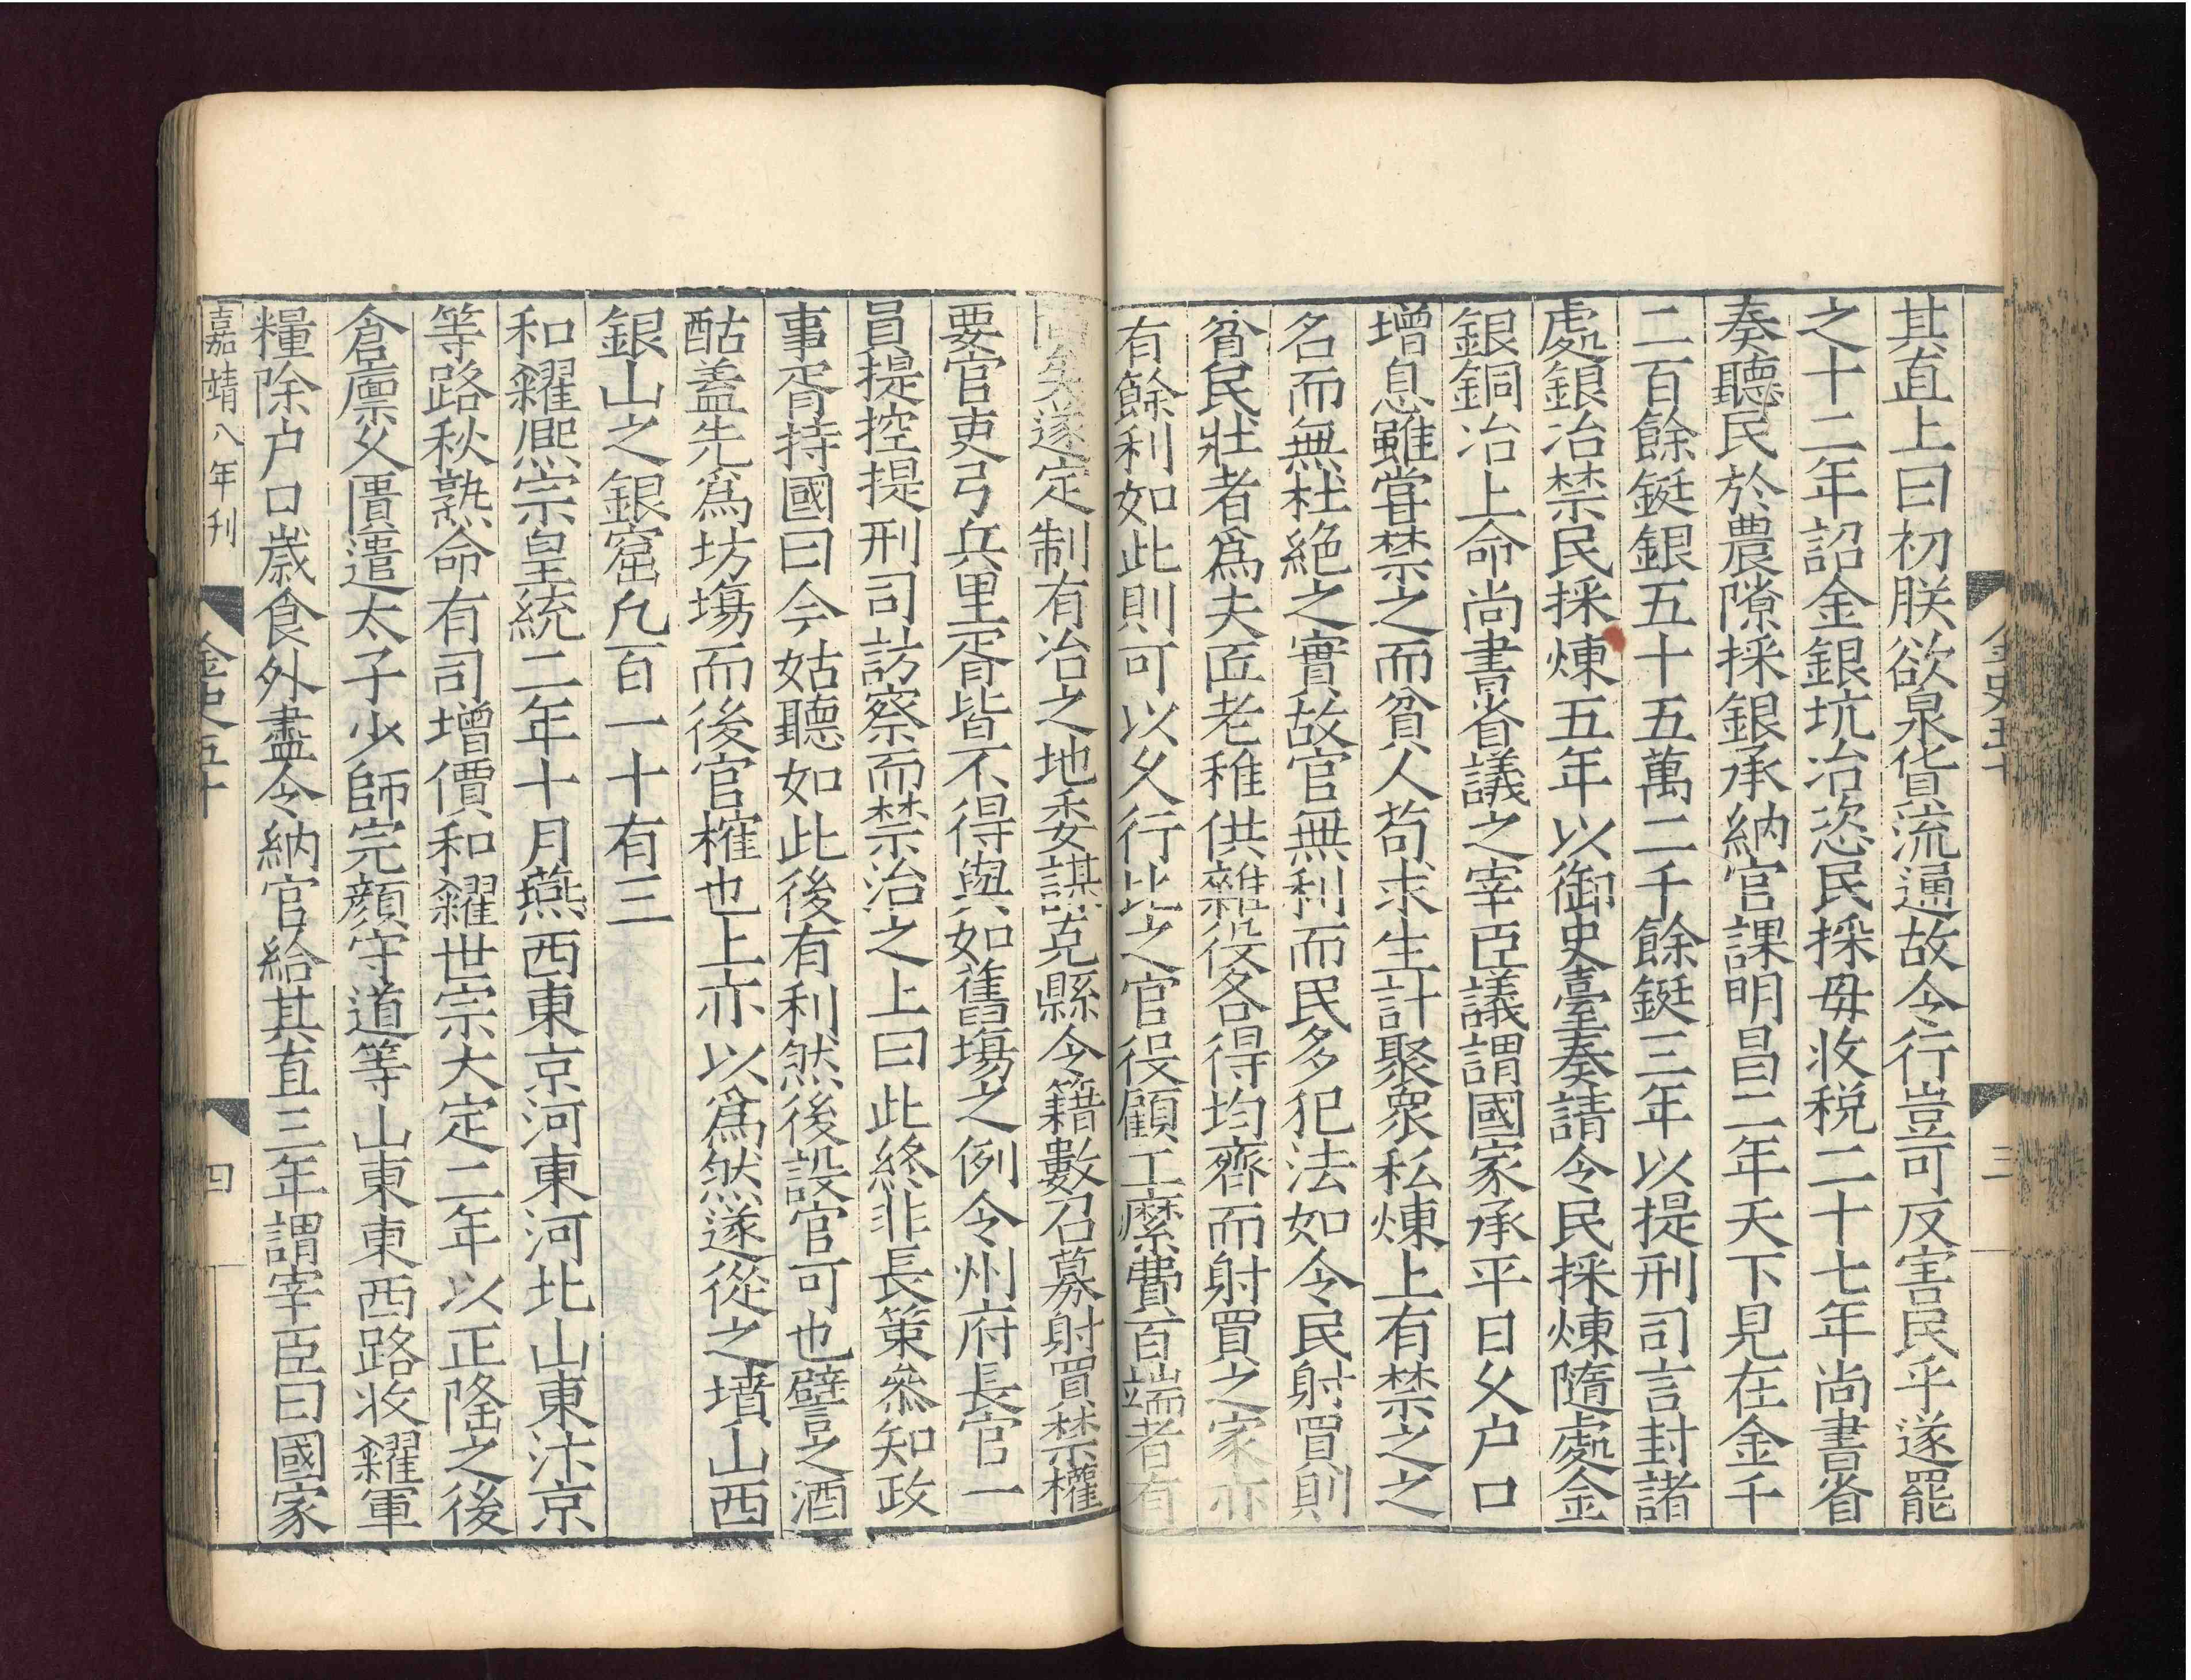 金史五十
三
其直上曰初朕欲泉貨流通故令行豈可反害民乎遂罷
之十二年詔金銀坑冶恣民採毋收税二十七年尚書省
奏聽民於農隙採銀承納官課明昌二年天下見在金千
二百餘鋌銀五十五萬二千餘鋌三年以提刑司言封諸
處銀冶禁民採煉五年以御史臺奏請令民採煉隨處金
銀銅冶上命尚書省議之宰臣議謂國家承平日乆户口
增息雖嘗禁之而貧人苟求生計聚衆私煉上有禁之之
名而無杜絶之實故官無利而民多犯法如令民射買則
貧民壯者爲夫匠老稚供雜役各得均齊而射買之家亦
有餘利如此則可以乆行比之官役顧工糜費百端者有
間矣遂定制有冶之地委謀克縣令籍數召募射買禁權
要官吏弓兵里胥皆不得與如舊塲之例令州府長官一
員提控提刑司訪察而禁治之上曰此終非長策參知政
事胥持國曰今姑聽如此後有利然後設官可也譬之酒
酤盖先爲坊塲而後官榷也上亦以爲然遂從之墳山西
銀山之銀窟凢百一十有三
和糴熈宗皇統二年十月燕西東京河東河北山東汴京
等路秋熟命有司增價和糴世宗大定二年以正隆之後
倉廪乆匱遣太子少師完顔守道等山東東西路收糴軍
糧除户口歳食外盡令納官給其直三年謂宰臣曰國家
嘉靖八年刊
金史五十
四